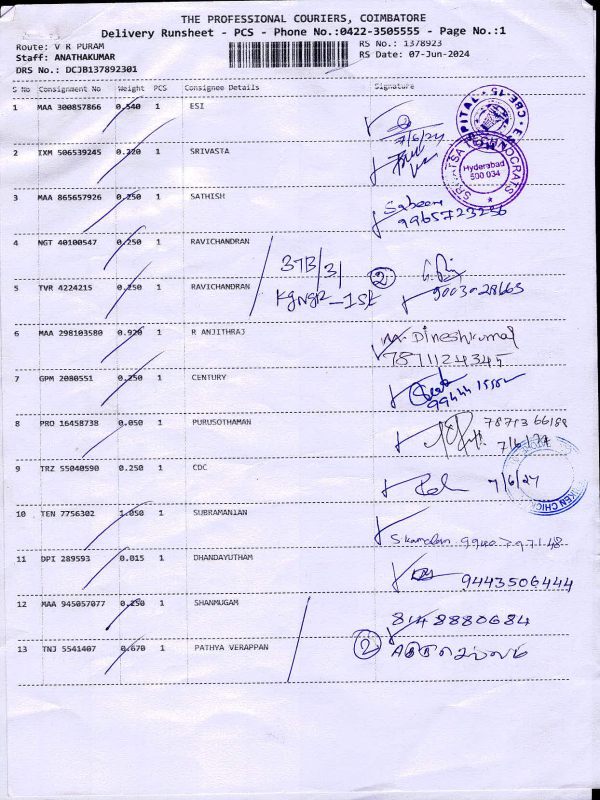 THE PROFESSIONAL COURIERS, COIMBATORE
Delivery Runsheet - PCS - Phone No.:0422-3505555 - Page No.:1
Route: V R PURAM
RS No.: 1378923
Staff: ANATHAKUMAR
RS Date: 07-Jun-2024
DRS No.: DCJB137892301
S No Consignment No Weight PCS Consignee Details Signature
1 MAA 300857866 0.540 1 ESI
7/6/24
2 IXM 506539245 0.220 1 SRIVASTA
Hyderabad
500 034
3 MAA 865657926 0.250 1 SATHISH
Sabeena
9965723256
4 NGT 40100547 0.250 1 RAVICHANDRAN
37B/3/
2
5 TVR 4224215 0.250 1 RAVICHANDRAN
9003028663
6 MAA 298103580 0.920 1 R ANJITHRAJ
M. Dineshkumar
7871124345
7 GPM 2080551 0.250 1 CENTURY
8 PRO 16458738 0.050 1 PURUSOTHAMAN
7/6/24
9 TRZ 55040590 0.250 1 CDC
7/6/24
10 TEN 7756302 1.050 1 SUBRAMANIAN
11 DPI 289593 0.015 1 DHANDAYUTHAM
9443506444
12 MAA 945057077 0.250 1 SHANMUGAM
8148880684
13 TNJ 5541407 0.670 1 PATHYA VERAPPAN
2